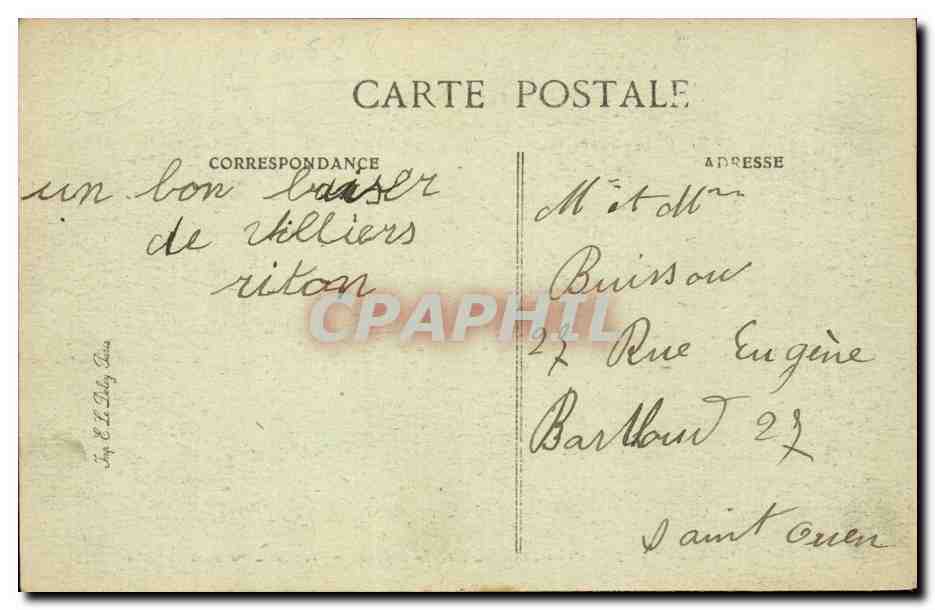 CARTE POSTALE
CORRESPONDANCE
un bon baiser
de Villiers
riton
ADRESSE
Mr et Mme
Buisson
27 Rue Eugène
27
Saint Ouen
Imp. E. Le Deley Paris
CPAPHIL